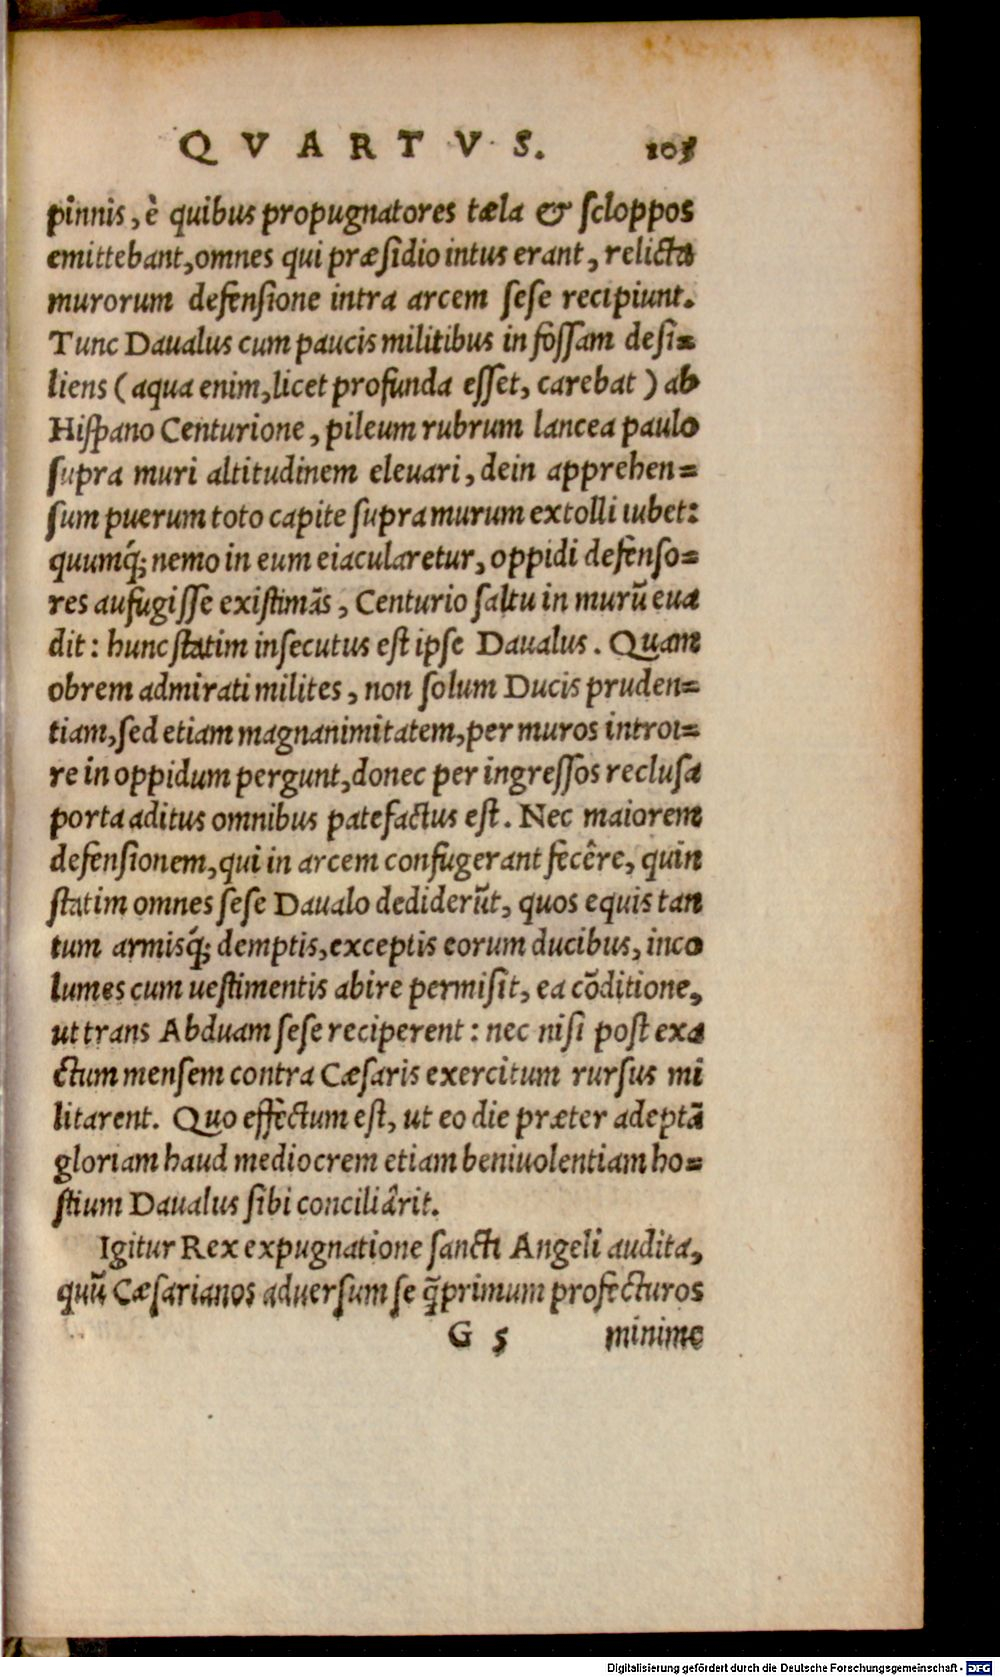 QVARTVS. 105
pinnis, è quibus propugnatores tæla & ſcloppos
emittebant, omnes qui præſidio intus erant, relicta
murorum defenſione intra arcem ſeſe recipiunt.
Tunc Daualus cum paucis militibus in foſſam deſi=
liens (aqua enim, licet profunda eſſet, carebat) ab
Hiſpano Centurione, pileum rubrum lancea paulo
ſupra muri altitudinem eleuari, dein apprehen=
ſum puerum toto capite ſupra murum extolli iubet:
quumq́; nemo in eum eiacularetur, oppidi defenſo=
res aufugiſſe exiſtimãs, Centurio ſaltu in murũ eua
dit: hunc ſtatim inſecutus eſt ipſe Daualus. Quam
obrem admirati milites, non ſolum Ducis pruden=
tiam, ſed etiam magnanimitatem, per muros introi=
re in oppidum pergunt, donec per ingreſſos recluſa
porta aditus omnibus patefactus eſt. Nec maiorem
defenſionem, qui in arcem confugerant fecêre, quin
ſtatim omnes ſeſe Daualo dediderũt, quos equis tan
tum armisq́; demptis, exceptis eorum ducibus, inco
lumes cum ueſtimentis abire permiſit, ea cõditione,
ut trans Abduam ſeſe reciperent: nec niſi poſt exa
ctum menſem contra Cæſaris exercitum rurſus mi
litarent. Quo effectum eſt, ut eo die præter adeptã
gloriam haud mediocrem etiam beniuolentiam ho=
ſtium Daualus ſibi conciliârit.
Igitur Rex expugnatione ſancti Angeli audita,
quũ Cæſarianos aduerſum ſe q̃primum profecturos
G 5 minime
Digitalisierung gefördert durch die Deutsche Forschungsgemeinschaft - DFG